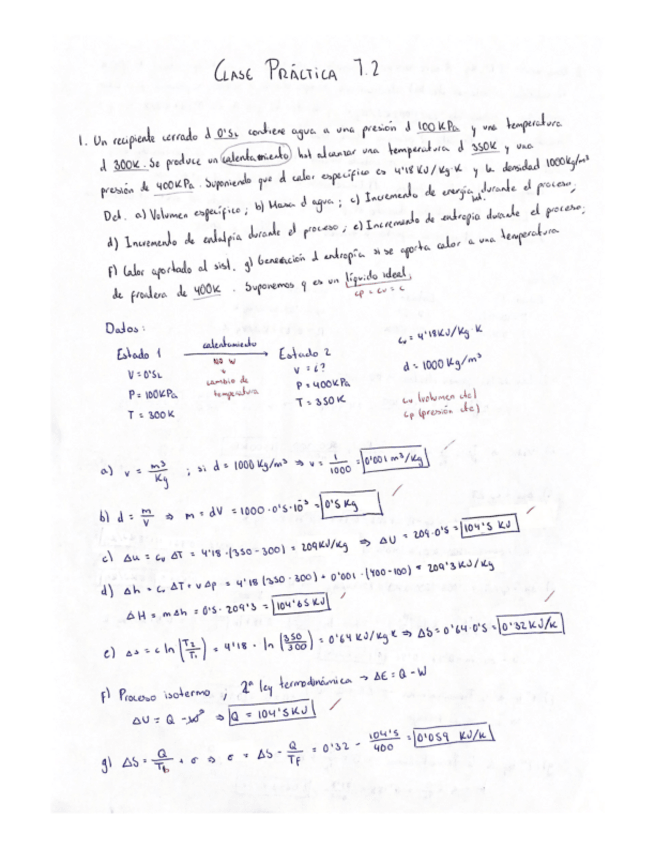 CLASE PRÁCTICA 7.2
1. Un recipiente cerrado d 0'5L contiene agua a una presión d 100KPa y una temperatura
d 300K. Se produce un calentamiento hst alcanzar una temperatura d 350K y una
presión de 400KPa. Suponiendo que el calor específico es 4'18 KJ/Kg·K y la densidad 1000Kg/m³
Det. a) Volumen específico; b) Masa d agua; c) Incremento de energía int. durante el proceso;
d) Incremento de entalpia durante el proceso; e) Incremento de entropia durante el proceso;
f) Calor aportado al sist. g) Generación d entropía si se aporta calor a una temperatura
de frontera de 400K. Suponemos q es un líquido ideal.
cp = cv = c
Datos:
Estado 1 calentamiento Estado 2
NO W
+
cambio de
temperatura
V = 0'5L
P = 100KPa
T = 300K
V = ¿?
P = 400KPa
T = 350K
cv = 4'18KJ/Kg·K
d = 1000 Kg/m³
cv (volumen cte)
cp (presión cte)
a) v = m³/Kg ; si d = 1000 Kg/m³ ⇒ v = 1/1000 = 0'001 m³/Kg
b) d = m/V ⇒ m = dV = 1000·0'5·10⁻³ = 0'5 Kg
c) Δu = cv ΔT = 4'18·(350-300) = 209KJ/Kg ⇒ ΔU = 209·0'5 = 104'5 KJ
d) Δh = cv ΔT + vΔp = 4'18 (350-300) + 0'001·(400-100) = 209'3KJ/Kg
ΔH = mΔh = 0'5·209'3 = 104'65 KJ
e) Δs = c ln |T2/T1| = 4'18 · ln |350/300| = 0'64 KJ/Kg K ⇒ ΔS = 0'64·0'5 = 0'32KJ/K
f) Proceso isotermo ; 2ª ley termodinámica → ΔE = Q - W
ΔU = Q - W⁰ ⇒ Q = 104'5KJ
g) ΔS = Q/Tb + σ ⇒ σ = ΔS - Q/TF = 0'32 - 104'5/400 = 0'059 KJ/K